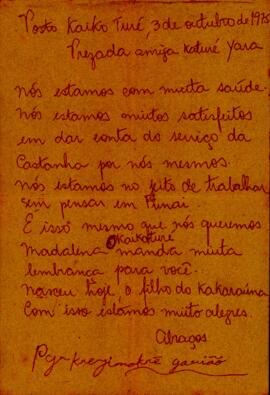 Posto Kaikoturé, 3 de outubro de 1975
Prezada amiga Katuré Yara
Nós estamos com muita saúde,
Nós estamos muitos satisfeitos
em dar conta do serviço da
Castanha por nós mesmos.
Nós estamos no jeito de trabalhar
sem pensar em Funai.
É isso mesmo que nós queremos
Kaikoturé
Madalena manda muita
lembrança para você.
Nasceu hoje, o filho do Kakaraúna
Com isso estamos muito alegres.
Abraços
krezimokrê gavião